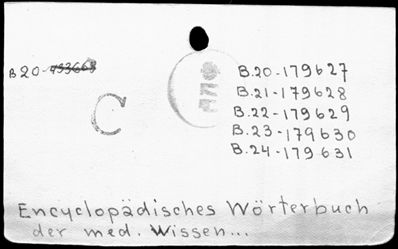 B 20-793663
B.20-179627
B.21-179628
B.22-179629
B.23-179630
B.24-179631
C
Encyclopädisches Wörterbuch
der med. Wissen...